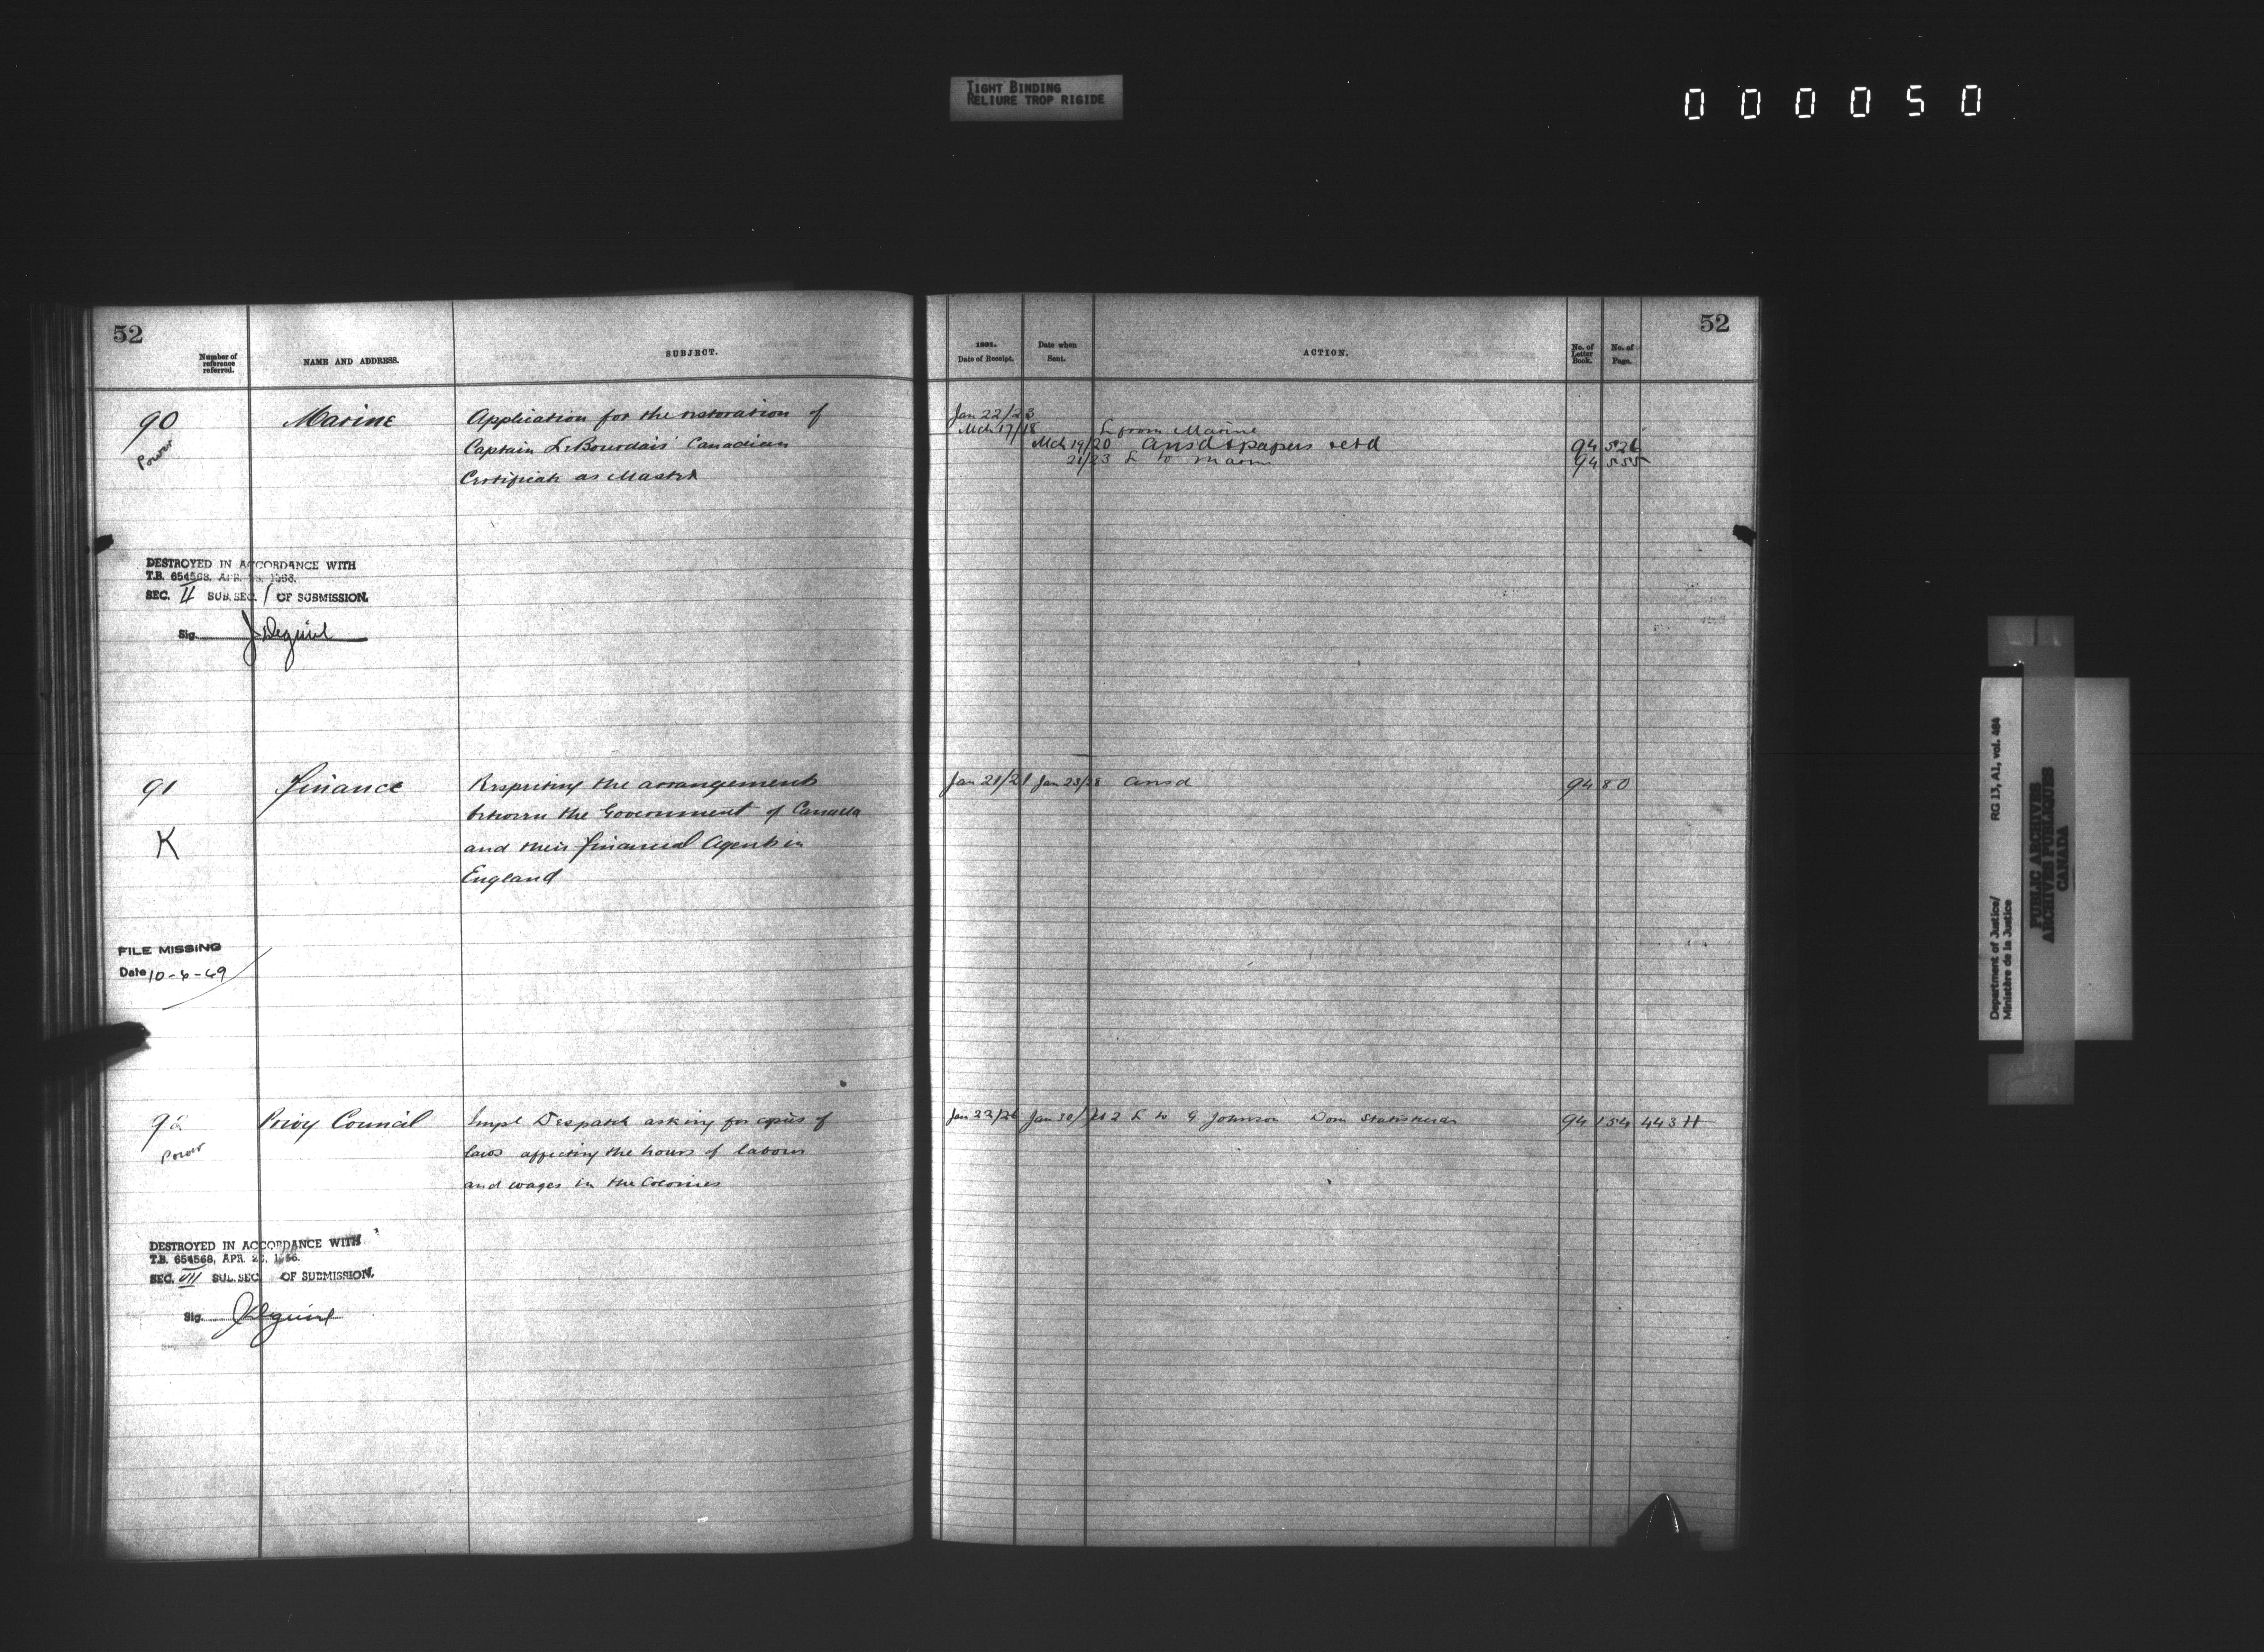 TIGHT BINDING
RELIURE TROP RIGIDE
000050
52
Number of
reference
referred.
NAME AND ADDRESS.
SUBJECT.
90
Power
Marine
Application for the restoration of
Captain LeBourdais' Canadian
Certificate as Master
DESTROYED IN ACCORDANCE WITH
T.B. 654568, APR. 1966.
SEC. II SUB. SEC. 1 OF SUBMISSION.
Sig.
91
K
Finance
Respecting the arrangements
between the Government of Canada
and their Financial Agents in
England
FILE MISSING
Date 10-6-69
92
Power
Privy Council
Impl Despatch asking for copies of
laws affecting the hours of labour
and wages in the Colonies
DESTROYED IN ACCORDANCE WITH
T.B. 654568, APR. 1966.
SEC. VII SUB. SEC. OF SUBMISSION.
Sig.
52
1891.
Date of Receipt.
Date when
Sent.
ACTION.
No. of
Letter
Book.
No. of
Page.
Jan 22/23
Mch 17/18 L from Marine
Mch 19/20 ansd & papers retd 94 526
21/23 L to Marine 94 555
Jan 21/21 Jan 23/28 ansd 94 80
Jan 22/26 Jan 30/ 2 L to G. Johnson Dom Statistician 94 154 443 H
Department of Justice/
Ministère de la Justice
RG 13, A1, vol. 484
PUBLIC ARCHIVES
ARCHIVES PUBLIQUES
CANADA